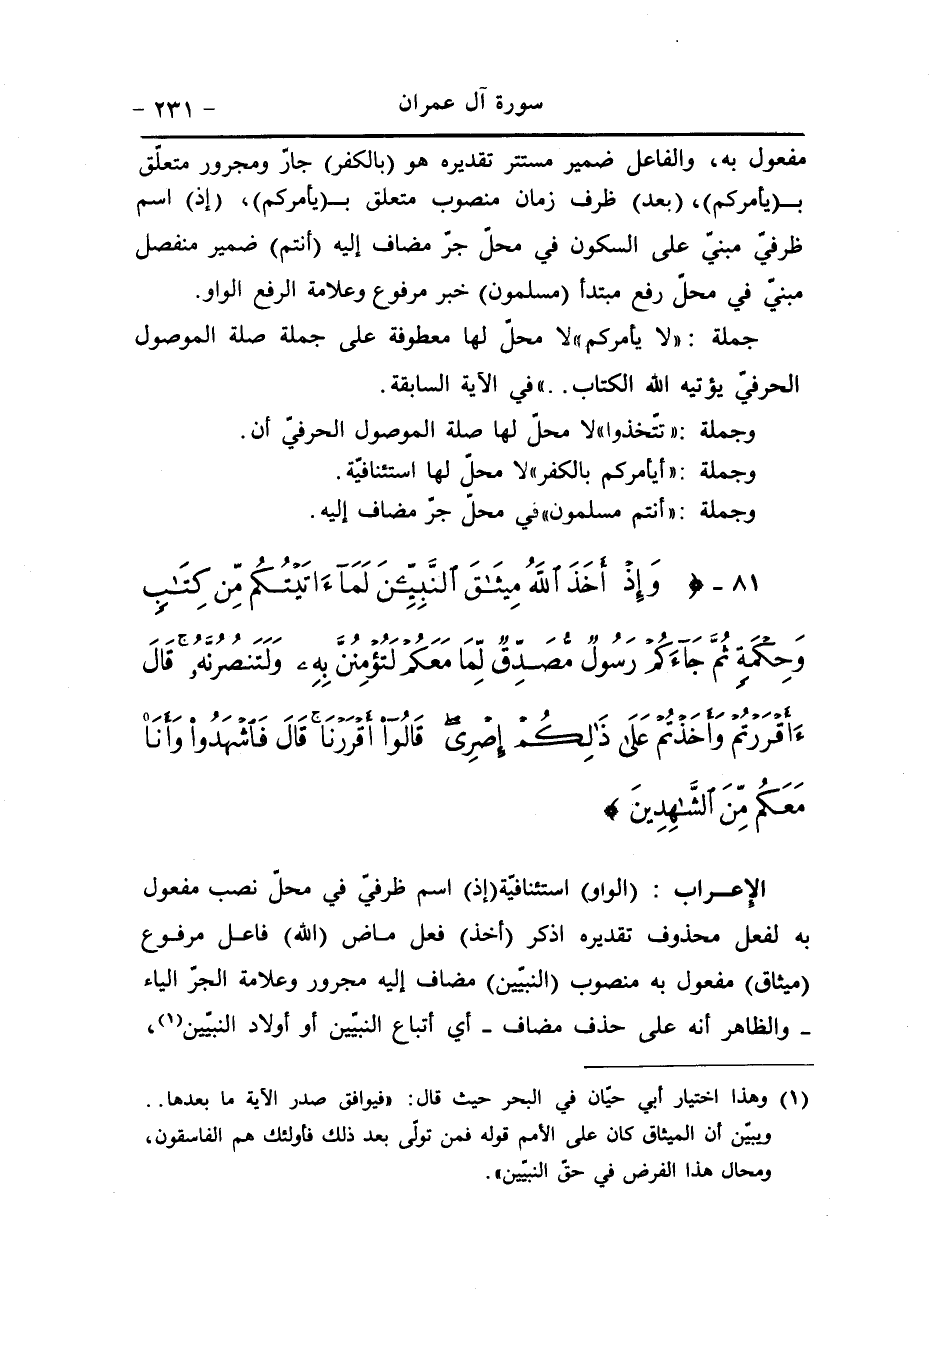 سورة آل عمران - ٢٣١ -
مفعول به، والفاعل ضمير مستتر تقديره هو (بالكفر) جارّ ومجرور متعلّق
بـ(يأمركم)، (بعد) ظرف زمان منصوب متعلق بـ(يأمركم)، (إذ) اسم
ظرفيّ مبنيّ على السكون في محلّ جرّ مضاف إليه (أنتم) ضمير منفصل
مبنيّ في محلّ رفع مبتدأ (مسلمون) خبر مرفوع وعلامة الرفع الواو.
جملة : «لا يأمركم» لا محلّ لها معطوفة على جملة صلة الموصول
الحرفيّ يؤتيه الله الكتاب. .» في الآية السابقة.
وجملة : «تتّخذوا» لا محلّ لها صلة الموصول الحرفيّ أن.
وجملة : «أيأمركم بالكفر» لا محلّ لها استئنافيّة.
وجملة : «أنتم مسلمون» في محلّ جرّ مضاف إليه.
٨١ - ﴿ وَإِذْ أَخَذَ ٱللَّهُ مِيثَٰقَ ٱلنَّبِيِّـۧنَ لَمَآ ءَاتَيْتُكُم مِّن كِتَٰبٍ
وَحِكْمَةٍ ثُمَّ جَآءَكُمْ رَسُولٌ مُّصَدِّقٌ لِّمَا مَعَكُمْ لَتُؤْمِنُنَّ بِهِۦ وَلَتَنصُرُنَّهُۥۚ قَالَ
ءَأَقْرَرْتُمْ وَأَخَذْتُمْ عَلَىٰ ذَٰلِكُمْ إِصْرِىۖ قَالُوٓا۟ أَقْرَرْنَاۚ قَالَ فَٱشْهَدُوا۟ وَأَنَا۠
مَعَكُم مِّنَ ٱلشَّٰهِدِينَ ﴾
الإعـراب : (الواو) استئنافيّة (إذ) اسم ظرفيّ في محلّ نصب مفعول
به لفعل محذوف تقديره اذكر (أخذ) فعل ماض (الله) فاعل مرفوع
(ميثاق) مفعول به منصوب (النبيّين) مضاف إليه مجرور وعلامة الجرّ الياء
ـ والظاهر أنه على حذف مضاف ـ أي أتباع النبيّين أو أولاد النبيّين(١)،
(١) وهذا اختيار أبي حيّان في البحر حيث قال: «فيوافق صدر الآية ما بعدها. .
ويبيّن أن الميثاق كان على الأمم قوله فمن تولّى بعد ذلك فأولئك هم الفاسقون،
ومحال هذا الفرض في حقّ النبيّين».